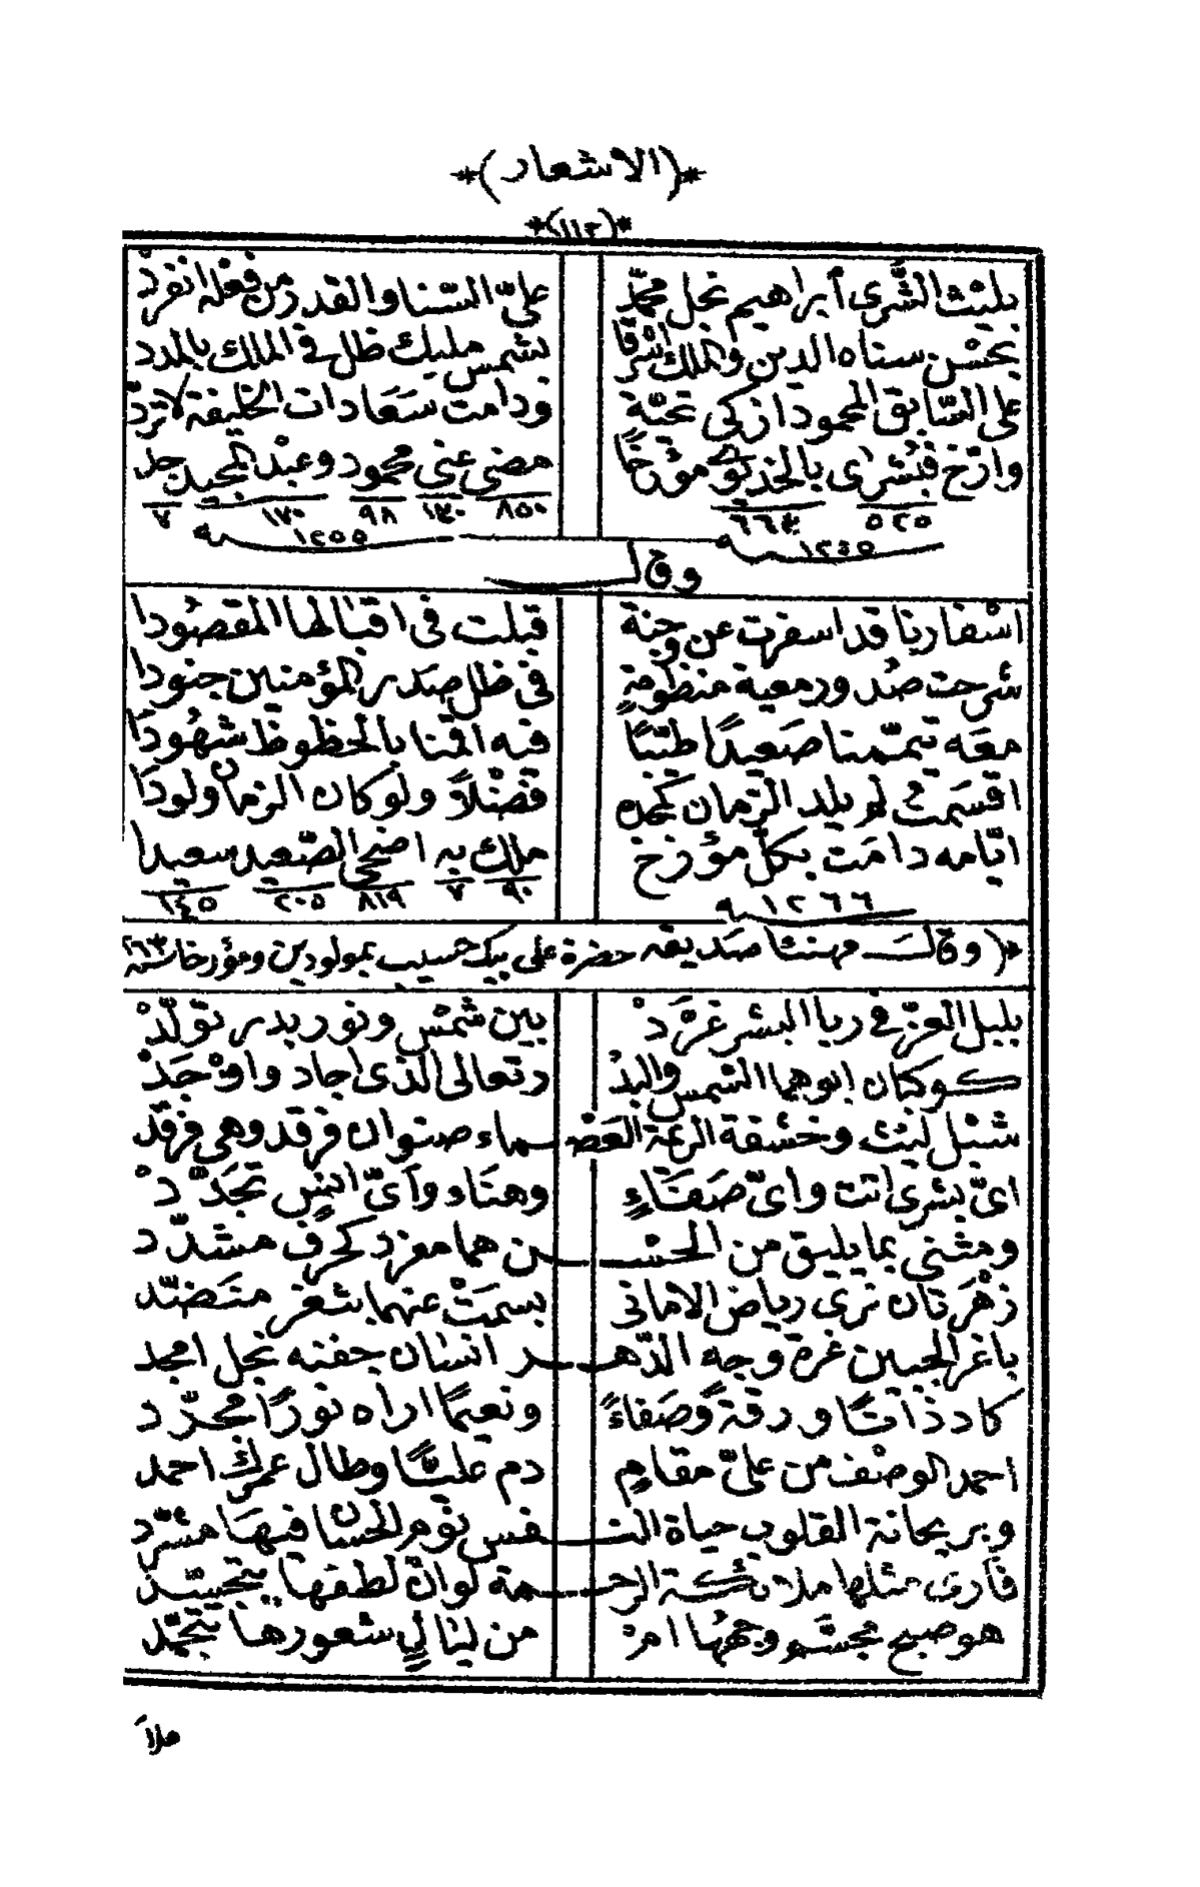 *(الاشعار)*
*(١١٢)*
بليث الشرى ابراهيم نجل محمّد علىّ السّنا والقدر من فعله انفرد
بحسن سناه الدين والملك اشرقا لشمس مليك ظل فى الملك بالمدد
على السّابق المحمود ازكى تحيّة ودامت سَعَادات الخليفة لا تردّ
وارّخ فبُشراى بالخديوى مؤرّخًا مضى عنى محمود وعبْد المجيد جلد
٥٢٥ ٦٦٤ ٨٥٠ ١٣٠ ٩٨ ١٧٠ ٧
١٢٤٥ ١٢٥٥
وقال
اسْفارنا قد اسفرت عن وجنة قبلت فى اقبالها المقصُودا
شرحت صُدور معية منظومة فى ظل صدر المؤمنين جنودا
معَه تيمّمنا صَعيدًا طيّبًا فيه اقمنا بالحظوظ شهُودَا
اقسَمت لم يلد الزمان كمجده فضْلاً ولو كان الزمان ولودَا
ايّامه دامَت بكلّ مؤرّخ ملك به اضحى الصّعيد سعيدا
١٢٦٦ ٩٠ ٧ ٨١٩ ٢٠٥ ١٤٥
*(وقال مهنئا صديقه حضرة على بيك حسيب بمولودين ومؤرخا سنة ١٢٦٣
بلبل العزّ فى ربا البشر غرّدْ بين شمْس ونور بدر تولّدْ
كوكبان ابوهما الشمس والبدْ ر تعالى الذى اجاد واوْجَدْ
شبْل ليْث وخشفة الريمة العَصْـ ـماء صنوان فرقد وهى فرقد
اىّ بشرى اتت واىّ صَفَاءٍ وهنَاء وآىّ انسٍ تجَدّدْ
ومثنى بما يليق من الحسْـ ـن هما مفرد كحرف مشدّد
زهْرَتان ترى رياض الامانى بسمَتْ عنهما بثغر منَضّد
ياغر الجبين غرة وجه الدّهـ ـر انسَان جفنه نجل امجد
كاد ذاتًا ورقة وصَفاءً ونعيمًا اراه نورًا مجرّد
احمد الوصْف من علىّ مقامٍ دم عليًّا وطال عمرك احمد
وبريحانة القلوب حياة النـ ـفس نوّم الحسَان فيهَا مشرّد
فارى مثلها ملائكة الرحـ ـمة لو انّ لطفها يتجسّد
هو صبح مجسّم وجههُا امْ من ليَالٍ شعورها تتجمّد
ملاَ